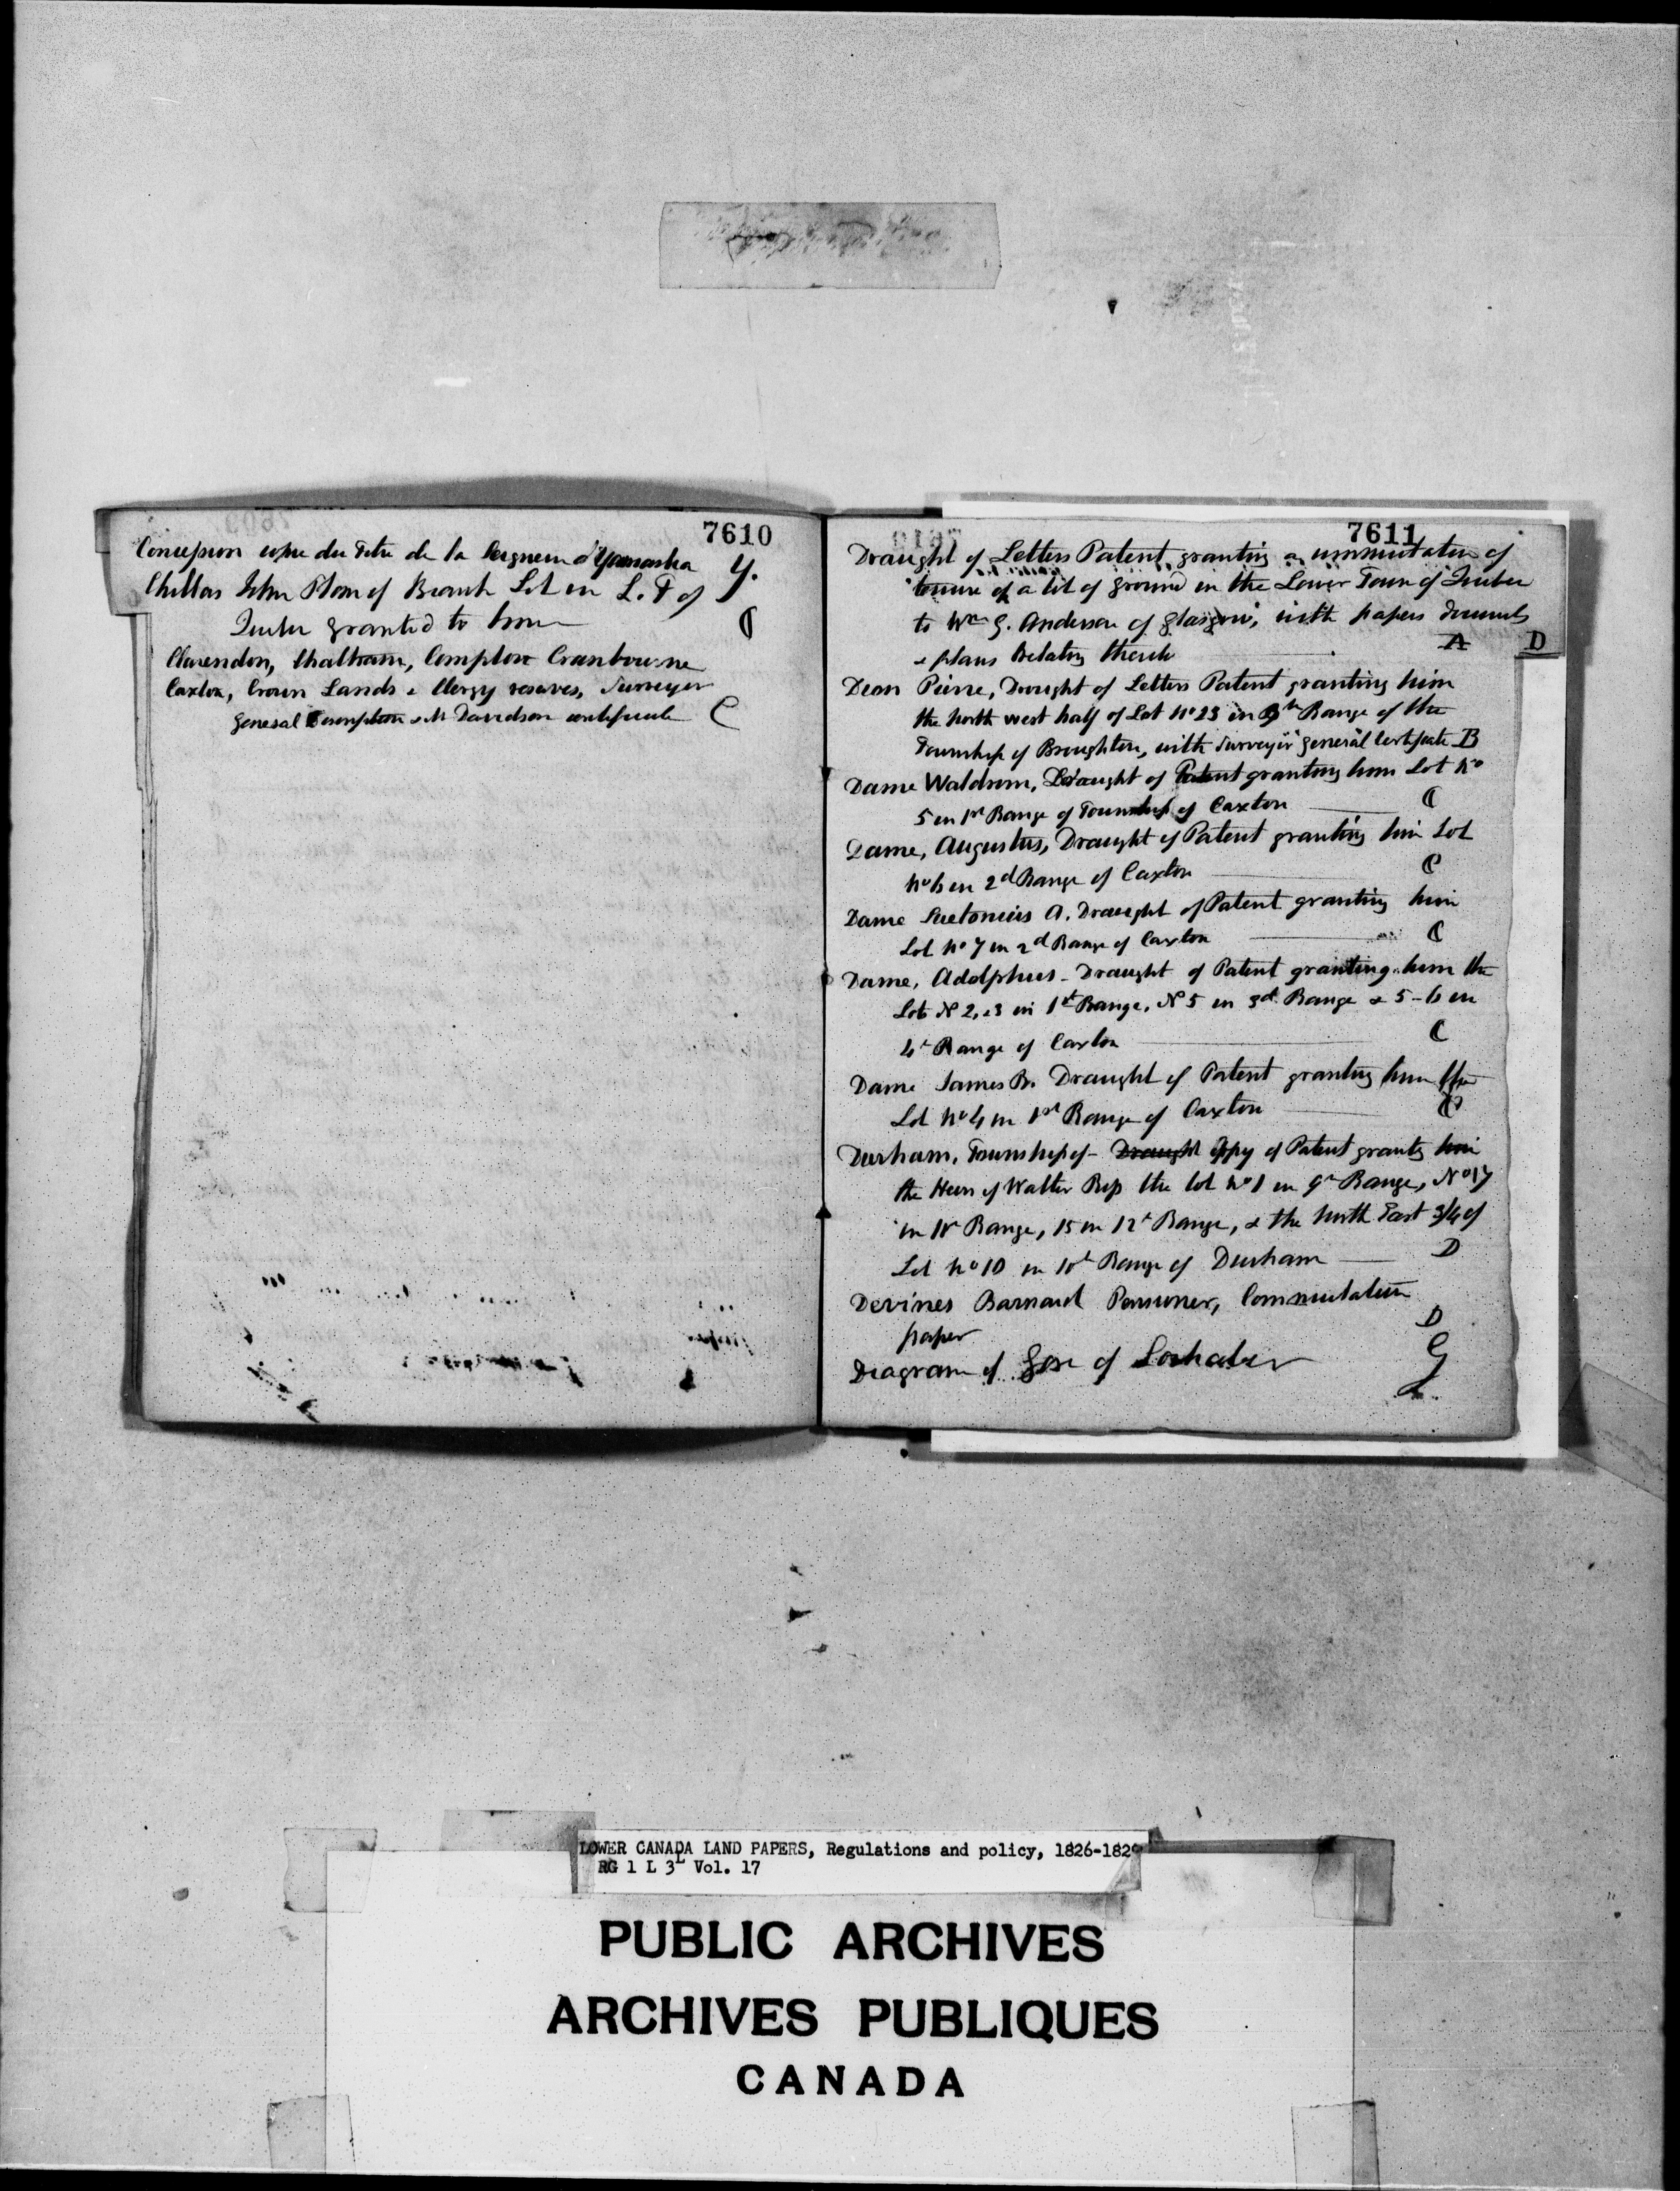 7610
Concession copie du Titre de la Seigneurie d'Yamaska Y.
Chillas John Plan of Beach Lot in L. T of
Quebec granted to him C
Clarendon, Chatham, Compton Cranbourne
Caxton, Crown Lands & Clergy reserves, Surveyor
General & Mr Davidson certificate C
7611
Draught of Letters Patent granting a commutation of
tenure of a lot of ground in the Lower Town of Quebec
to Wm G. Anderson of Glasgow, with papers
& plans Relating thereto A D
Dion Pierre, Draught of Letters Patent granting him
the North west half of Lot No 23 in 9th Range of the
Township of Broughton, with Surveyor general Certificate B
Dame Waldron, Draught of Patent granting him Lot No
5 in 1st Range of Township of Caxton C
Dame, Augustus, Draught of Patent granting him Lot
No 6 in 2d Range of Caxton C
Dame Suetonius A. Draught of Patent granting him
Lot No 7 in 2d Range of Caxton C
Dame, Adolphus - Draught of Patent granting him the
Lots N 2, & 3 in 1st Range, N 5 in 3d Range & 5 - 6 in
4th Range of Caxton C
Dame James B. Draught of Patent granting him the
Lot No 4 in 1st Range of Caxton C
Durham, Township of - Draught Copy of Patent granting him
the Heirs of Walter the lot No 1 in 9th Range, No 17
in Range, 15 in 12th Range, & the North East 3/4 of
Lot No 10 in 10th Range of Durham D
Devines Barnard Pensioner, Commutation
paper D
Diagram of Gore of Lochaber G
L.
LOWER CANADA LAND PAPERS, Regulations and policy, 1826-1829
RG 1 L 3L Vol. 17
PUBLIC ARCHIVES
ARCHIVES PUBLIQUES
CANADA